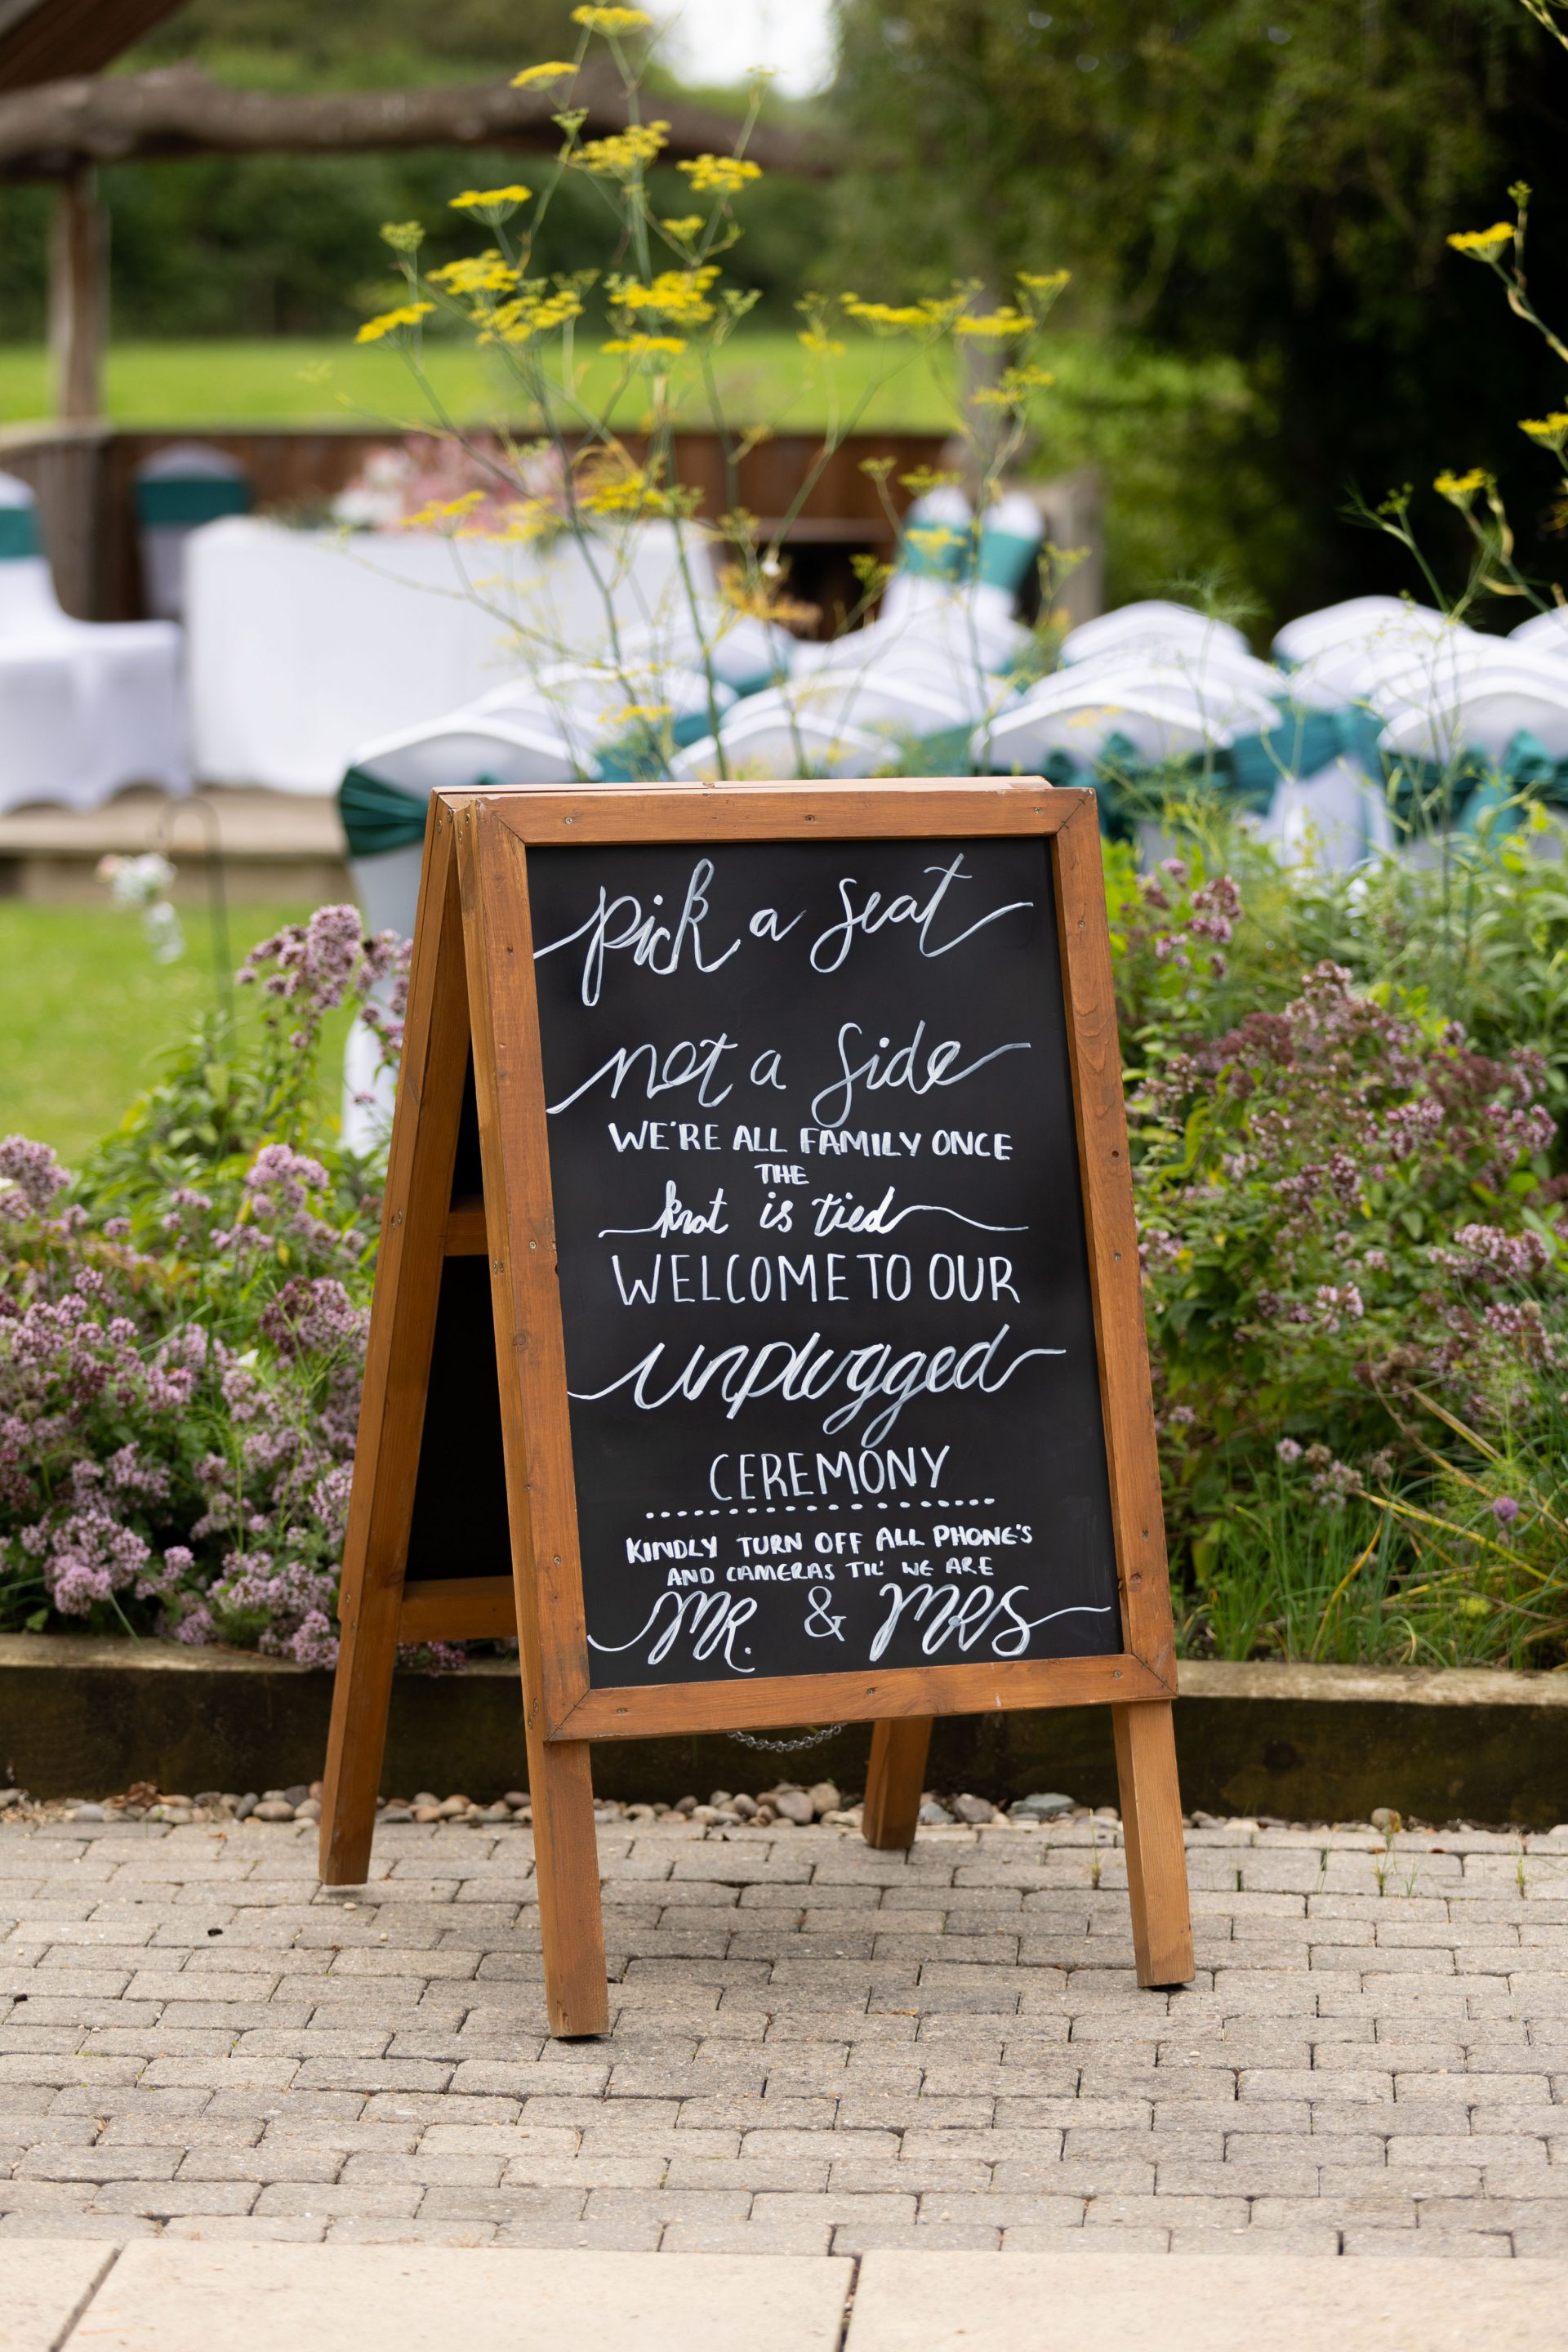 pick a seat
not a side
WE'RE ALL FAMILY ONCE
THE
knot is tied
WELCOME TO OUR
unplugged
CEREMONY
KINDLY TURN OFF ALL PHONE'S
AND CAMERAS TIL' WE ARE
MR. & MRS